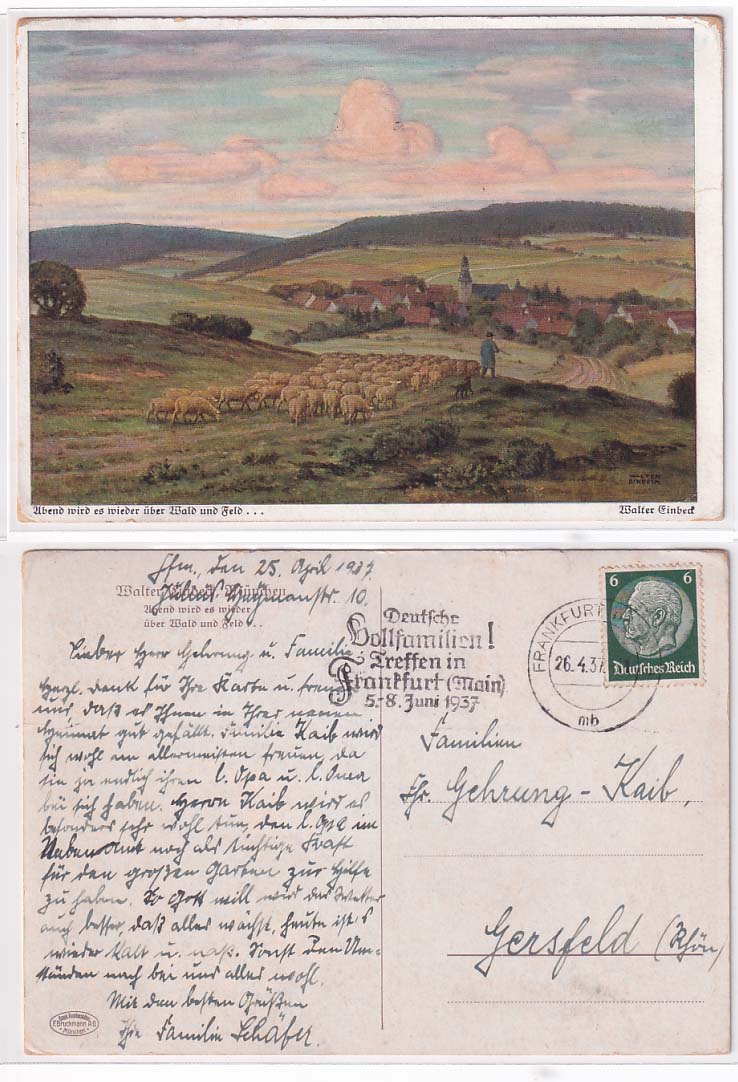 Abend wird es wieder über Wald und Feld . . .
Walter Einbeck
WALTER
EINBECK
Ffm, den 25. April 1937.
Julius Wegmanstr. 10.
Walter Einbeck, München
Abend wird es wieder
über Wald und Feld . . .
Lieber Herr Gehrung u. Familie!
Herzl. Dank für Ihre Karte u. freuen
uns, daß es Ihnen in Ihrer neuen
Heimat gut gefällt. Familie Kaib wird
sich wohl am allermeisten freuen, da
sie ja endlich ihren l. Opa u. l. Oma
bei sich haben. Herrn Kaib wird es
besonders sehr wohl tun, den l. Opa im
Nebenamt noch als tüchtige Kraft
für den großen Garten zur Hilfe
zu haben. So Gott will wird das Wetter
auch besser, daß alles wächst, heute ist's
wieder kalt u. naß. Sonst den Um-
ständen nach bei uns alles wohl.
Mit den besten Grüßen
Ihre Familie Schäfer.
F. Bruckmann A.G.
München
Deutsche
Vollfamilien!
Treffen in
Frankfurt (Main)
5.-8. Juni 1937
FRANKFURT
26.4.37
mb
6 6
Deutsches Reich
Familien
Hr. Gehrung - Kaib,
Gersfeld (Rhön)